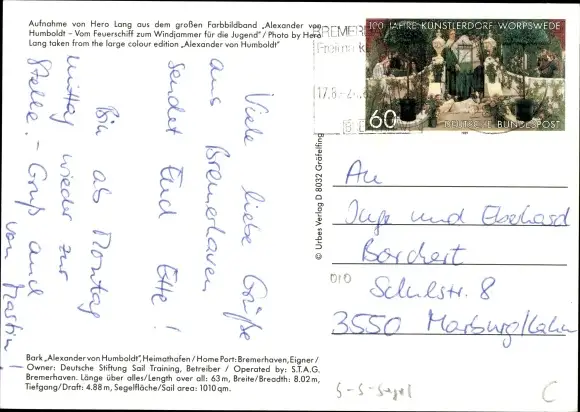 Aufnahme von Hero Lang aus dem großen Farbbildband „Alexander von
Humboldt – Vom Feuerschiff zum Windjammer für die Jugend"/Photo by Hero
Lang taken from the large colour edition „Alexander von Humboldt"
Viele liebe Grüße
aus Bremerhaven
sendet Euch
Bin ab Montag
mittag wieder zur
Stelle. – Gruß auch
von Martin!
Bark „Alexander von Humboldt", Heimathafen/Home Port: Bremerhaven, Eigner/
Owner: Deutsche Stiftung Sail Training, Betreiber / Operated by: S.T.A.G.
Bremerhaven. Länge über alles/Length over all: 63 m, Breite/Breadth: 8.02 m,
Tiefgang/Draft: 4.88 m, Segelfläche/Sail area: 1010 qm.
© Urbes Verlag D 8032 Gräfelfing
BREMERH
17.8.
100 JAHRE KÜNSTLERDORF WORPSWEDE
60
DEUTSCHE BUNDESPOST
An
Inge und Eberhard
Borchert
Schulstr. 8
3550 Marburg/Lahn
S-S-Segel
C